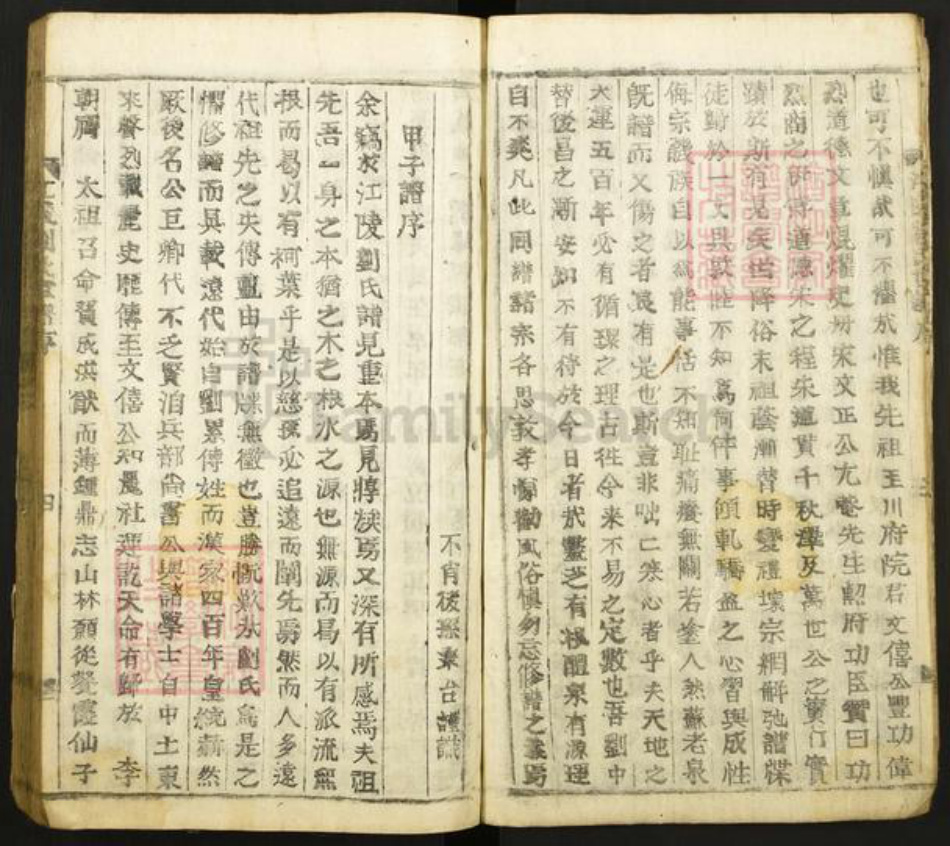 也可不愼哉可不懼哉惟我先祖玉川府院君文僖公豐功偉
烈道德文章焜燿史册宋文正公尤菴先生勲府功臣實曰功
烈商之伊傅道德宋之程朱道貫千秋澤及萬世公之實行實
蹟於斯可見矣世降俗末祖蔭漸替時變禮壞宗綱解弛譜牒
徒歸於一文具欺世不知爲何件事傾軋驕盈之心習與成性
侮宗譏族自以爲能事恬不知耻痛癢無關若塗人然蘇老泉
旣譜而又傷之者良有是也斯豈非咄亡寒心者乎夫天地之
大運五百年必有循環之理古往今來不易之定數也吾劉中
替後昌之漸安知不有待於今日者哉靈芝有根醴泉有源理
自不爽凡此同譜諸宗各思敦孝悌勸風俗愼勿忘修譜之義焉
不肖後孫秦台謹識
甲子譜序
余竊求江陵劉氏譜見重本焉見將缺焉又深有所感焉夫祖
先吾一身之本猶之木之根水之源也無源而曷以有派流無
根而曷以有柯葉乎是以慈孫必追遠而闡先焉然而人多遠
代祖先之失傳亶由於譜牒無徵也豈勝慨歎哉劉氏爲是之
懼修譜而具載遠代始自劉累傳姓而漢家四百年皇統赫然
厥後名公巨卿代不乏賢洎兵部尙書公與諸學士自中土東
來聲烈載麗史厖傳至文僖公知麗社運訖天命有歸於 李
朝 太祖召命贊成洪猷而薄鍾鼎志山林願從熒靈仙子